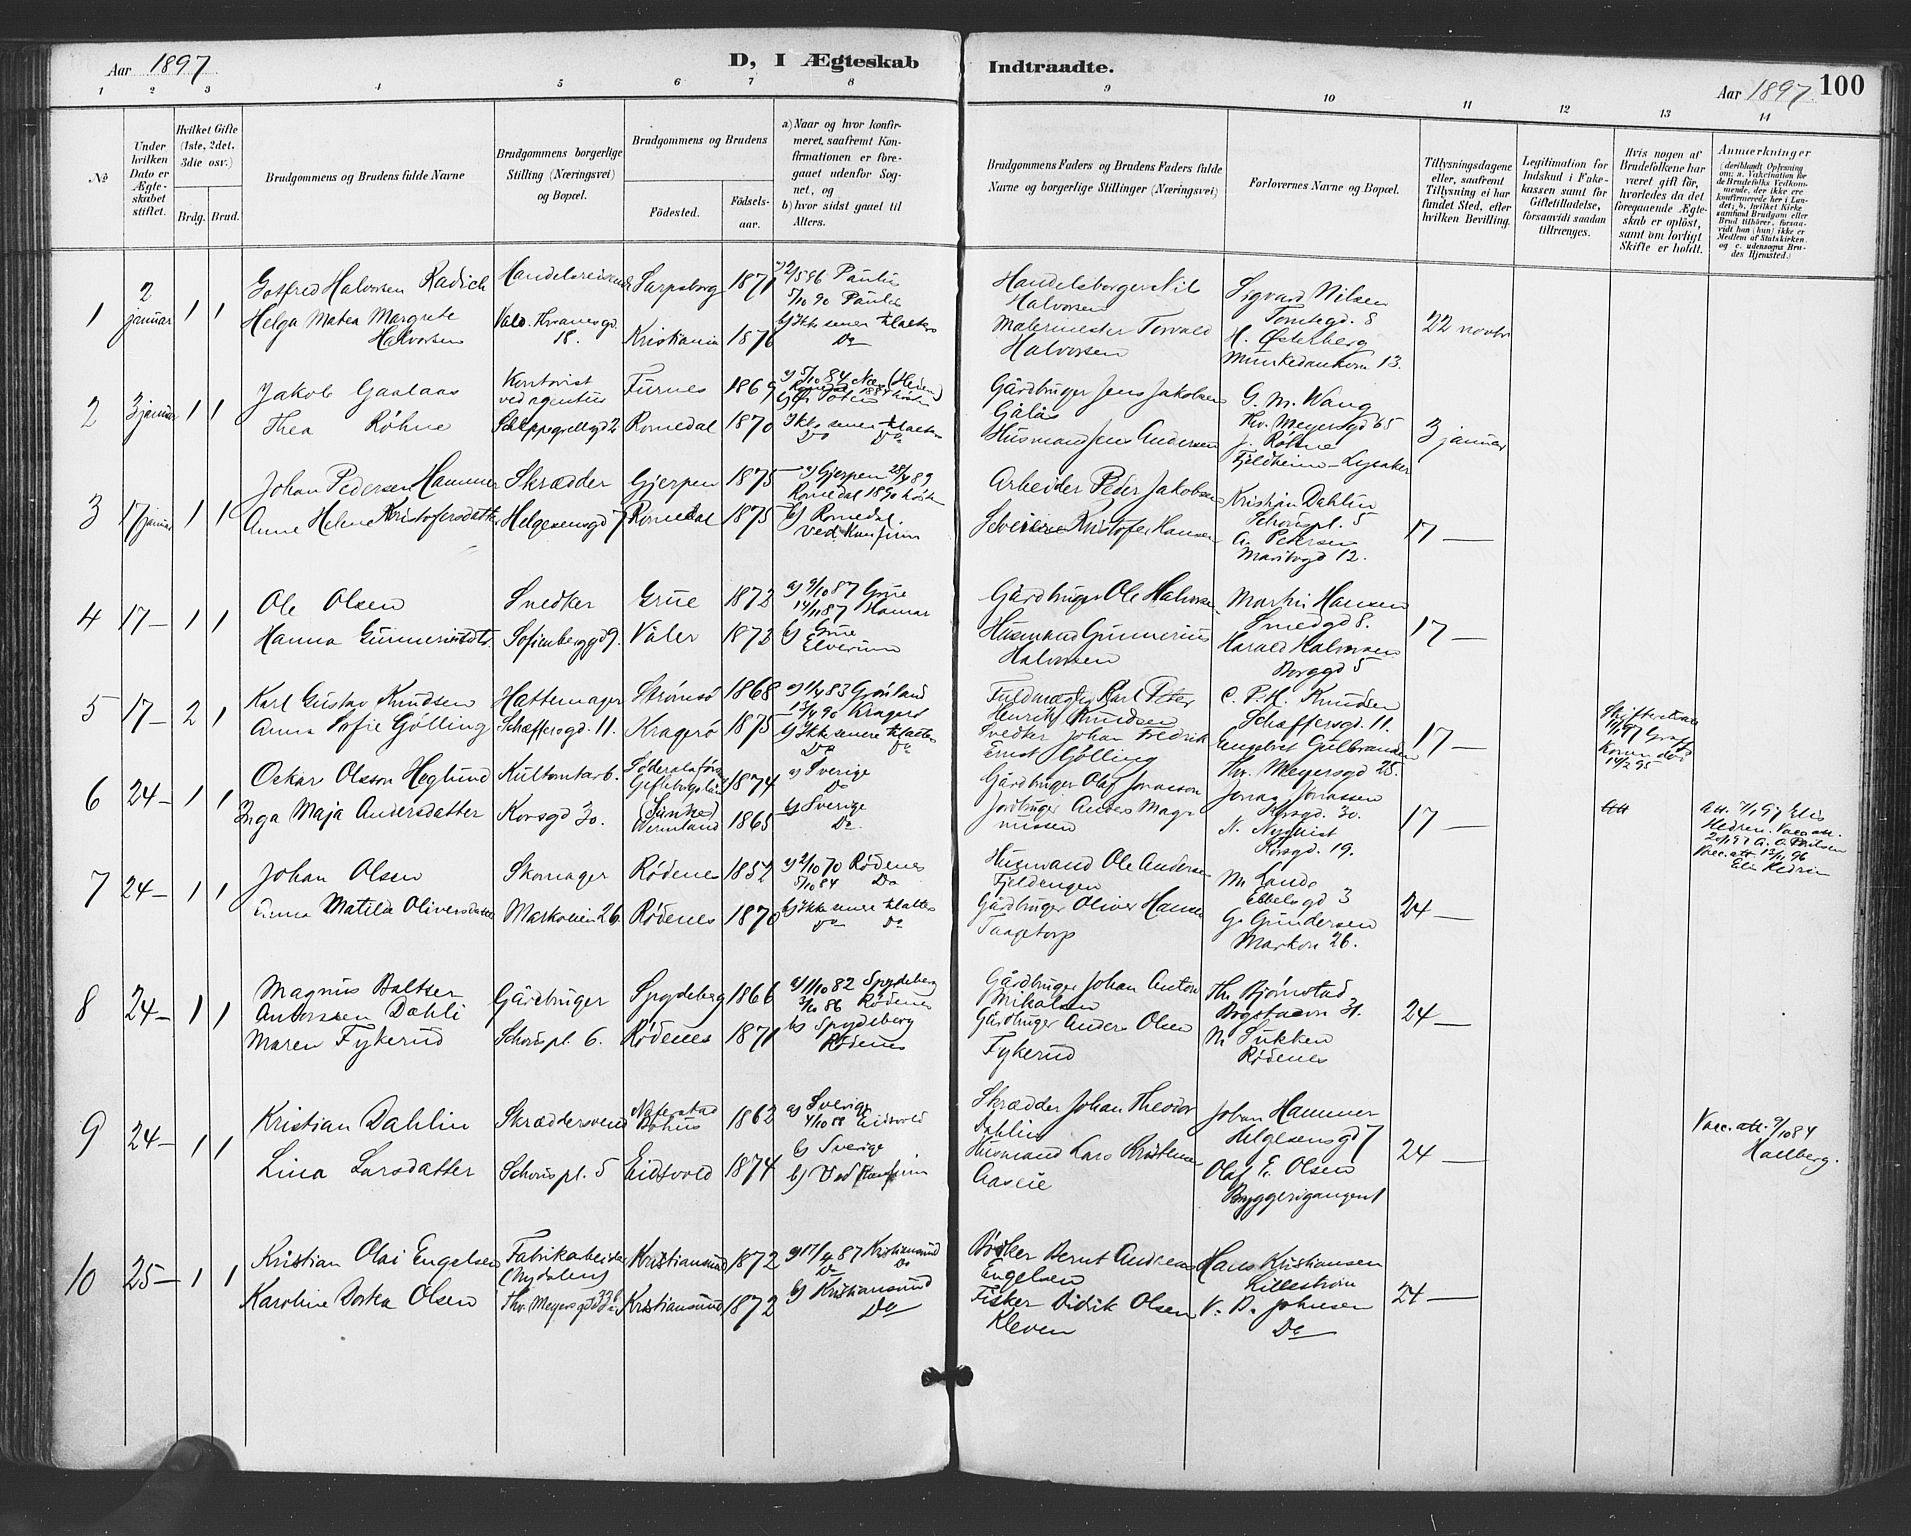 Aar 1897
D, I Ægteskab
Indtraadte.
Aar 1897. 100
1 2 3 4 5 6 7 8 9 10 11 12 13 14
No
Under hvilken Dato er Ægteskabet stiftet.
Hvilket Gifte (1ste, 2det, 3die osv.)
Brdg. Brud.
Brudgommens og Brudens fulde Navne
Brudgommens borgerlige Stilling (Næringsvei) og Bopæl.
Brudgommens og Brudens
Födested.
Födselsaar.
a) Naar og hvor konfirmeret, saafremt Konfirmationen er foregaaet udenfor Sognet, og
b) hvor sidst gaaet til Alters.
Brudgommens Faders og Brudens Faders fulde Navne og borgerlige Stillinger (Næringsvei)
Forlovernes Navne og Bopæl.
Tillysningsdagene eller, saafremt Tillysning ei har fundet Sted, efter hvilken Bevilling.
Legitimation for Indskud i Fakekassen samt for Giftetilladelse, forsaavidt saadan tiltrænges.
Hvis nogen af Brudefolkene har været gift för, hvorledes da det foregaaende Ægteskab er oplöst, samt om lovligt Skifte er holdt.
Anmærkninger
1 2 januar 1 1
Gotfred Halvorsen Radich
Helga Matea Margrete Halvorsen
18.
Sarpsborg 1871
Kristiania 1876
5/10 90 Paulus
b) Ikke senere til alters
Do
Handelsborger Nils Halvorsen
Malermester Torvald Halvorsen
Sigvard Nilsen
Tomtegd. 8
H. Østerberg
Munkedamsvn. 13.
22 novbr
2 3 januar 1 1
Jakob Gaalaas
Thea Røhne
Kontorist
ved agentur
Schleppegrellsgd 2
Furnes 1869
Romedal 1870
Ikke senere til alters
Do Do
Gårdbruger Jens Jakobsen
Gålås
Husmand Jens Andersen
G. M. Wang
Thv. Meyersgd 65
J. Røhne
Fjeldheim – Lysaker
3 januar
3 17 januar 1 1
Johan Pedersen Hammer
Anne Helene Kristofersdatter
Skrædder
Helgesensgd 7
Gjerpen 1875
Romedal 1875
a) Gjerpen 28/4 89
Romedal 1890 høst
b) Romedal.
ved. Konfirm
Arbeider Peder Jakobsen
Kristofer Hansen
Kristian Dahlin
Schouspl. 5
A. Petersen
Maribogd 12.
17 —
4 17 — 1 1
Ole Olsen
Hanna Gunneriusdtr.
Snedker
Sofienberggd 9.
Grue 1872
Våler 1872
a) 9/10 87 Grue
14/11 87 Hamar
b) Grue
Elverum
Gårdbruger Ole Halvorsen
Husmand Gunnerius Halvorsen
Martin Hansen
Smedgd 8.
Harald Halvorsen
Borggd 5
17 —
5 17 — 2 1
Karl Gustav Knudsen
Anna Sofie Gjölling
Hattemager
Schæffersgd. 11.
Strømsø 1868
Kragerø 1875
a) 1/4 83 Grønland
13/4 90 Kragerø
b) Ikke senere til alters
Do Do
Fuldmægtig Karl Peter
Henrik Knudsen
Snedker Johan Fredrik
Ernst Gjölling
C. P. H. Knudsen
Schæffersgd. 11.
Engebret Gulbrandsen
Thv. Meyersgd 25.
17 —
14/2 95
6 24 — 1 1
Oskar Olsson Heglund
Inga Maja Andersdatter
Kultomtarb.
Korsgd 30.
1874
(Sunne)
Vermland 1865
a) Sverige
Do
b) Sverige
Do.
Gårdbruger Olaf Jonasson
Jordbruger Anders Magnussen
Jonas Jonassen
Korsgd. 30.
N. Nyqvist
Korsgd. 19.
17 —
7 24 — 1 1
Johan Olsen
Anna Matilda Oliversdatter
Skomager
Markveien 26.
Rödenes 1852
Rödenes 1870
a) 2/10 70 Rødenes
5/10 84 Do
b) Ikke senere til alters
Do Do
Husmand Ole Andersen
Fjeldengen
Gårdbruger Oliver Hansen
Taagetorp
M. Lande
Ebbelsgd 3
G. Gundersen
Markvn 26.
24 —
8 24 — 1 1
Magnus Baltser
Anderssen Dahli
Maren Fykerud
Gårdbruger
Schouspl. 6.
Spydeberg 1866
Rödenes 1871
a) 1/10 82 Spydeberg
3/10 86 Rödenes
b) Spydeberg
Rödenes
Gårdbruger Johan Anton
Mikalsen
Gårdbruger Anders Olsen
Fykerud
Th. Bjørnstad
Bogstadvn 31.
M. Sukken
Rødenes
24 —
9 24 — 1 1
Kristian Dahlin
Lina Larsdatter
Skræddersvend
Schouspl. 5
Bohus 1862
Eidsvold 1874
a) Sverige
4/10 88 Eidsvold
b) Sverige
b) Ved Konfirm
Skrædder Johan Theodor
Dahlin
Husmand Lars Kristensen
Aaseie
Johan Hammer
Helgesensgd 7
Olaf E. Olsen
Bryggerigangen 1
24 —
Vacc. att. 9/10 84
Hallberg.
10 25 — 1 1
Kristian Olai Engelsen
Karoline Dorka Olsen
Fabrikarbeider
(Nydalens)
Thv. Meyersgd 33b
Kristiansund 1872
Kristiansund 1872
a) 17/4 87 Kristiansund
Do Do
b) Kristiansund
Do
Bødker Bernt Andreas
Engelsen
Fisker Didrik Olsen
Kleven
Hans Kristiansen
Lillestrøm
V. D. Johnsen
Do
24 —